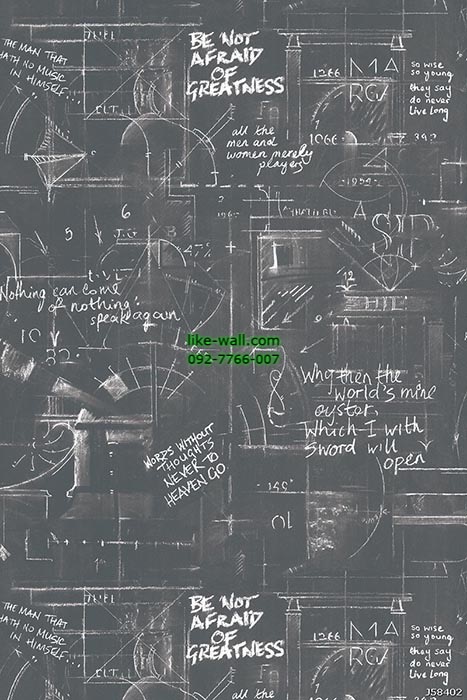 THE MAN THAT
HATH NO MUSIC
IN HIMSELF...
BE NOT
AFRAID
OF
GREATNESS
1266
MA
RCV
so wise
so young
they say
do never
live long
all the
men and
women merely
players
1066
342
1954
6
5
2
196
A
SID
475
12
Nothing can come
of nothing:
speak again
10
32
like-wall.com
092-7766-007
Why then the
world's mine
oyster,
Which I with
sword will
open
WORDS WITHOUT
THOUGHTS
NEVER TO
HEAVEN GO
THE MAN THAT
HATH NO MUSIC
IN HIMSELF...
BE NOT
AFRAID
OF
GREATNESS
1266
MA
RCV
so wise
so young
they say
do never
live long
all the
J58402